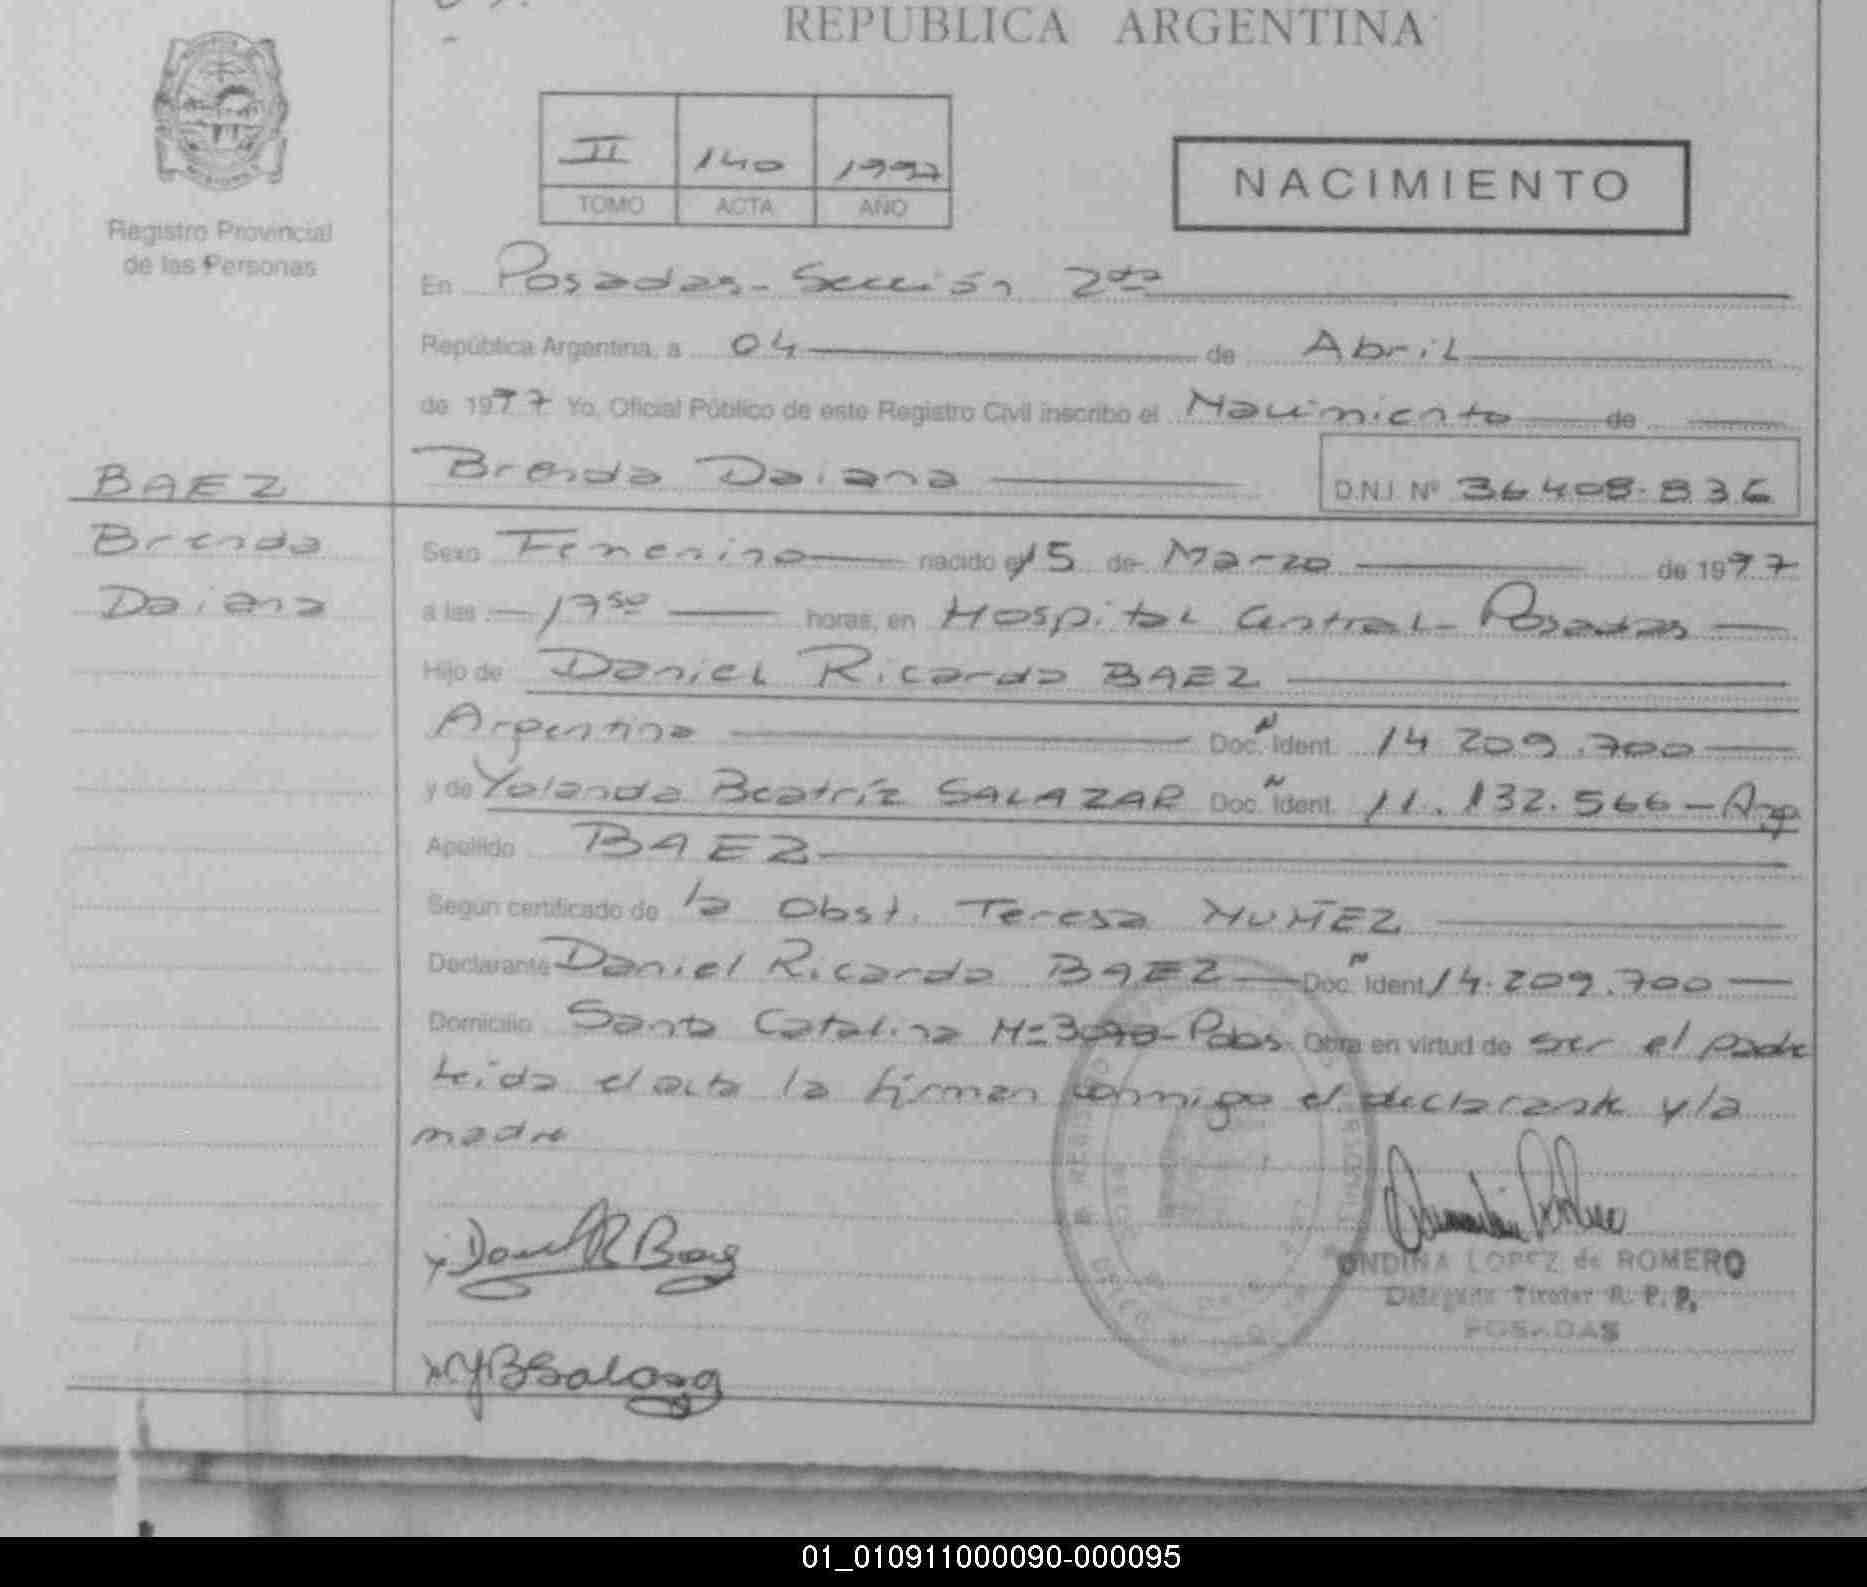 REPUBLICA ARGENTINA
II 140 1997
TOMO ACTA AÑO
NACIMIENTO
Registro Provincial
de las Personas
En Posadas - Sección 2da
República Argentina, a 04 de Abril
de 1997 Yo, Oficial Público de este Registro Civil inscribo el Nacimiento de
BAEZ
Brenda
Daiana
Brenda Daiana D.N.I. Nº 36408.836
Sexo Femenino nacido el 15 de Marzo de 1997
a las 17 50 horas, en Hospital Central - Posadas
Hijo de Daniel Ricardo BAEZ
Argentina Doc. Ident. 14 209.700
y de Yolanda Beatríz SALAZAR Doc. Ident. 11.132.566 - Arg
Apellido BAEZ
Según certificado de la Obst. Teresa NUÑEZ
Declarante Daniel Ricardo BAEZ Doc. Ident 14.209.700
Domicilio Santa Catalina Nº 3090 - Pdas Obra en virtud de ser el padre
Leida el acta la firman conmigo el declarante y la
madre
Daniel R Baez
YBSalazar
ONDINA LOPEZ de ROMERO
Delegada Titular R. P. P.
POSADAS
01_010911000090-000095